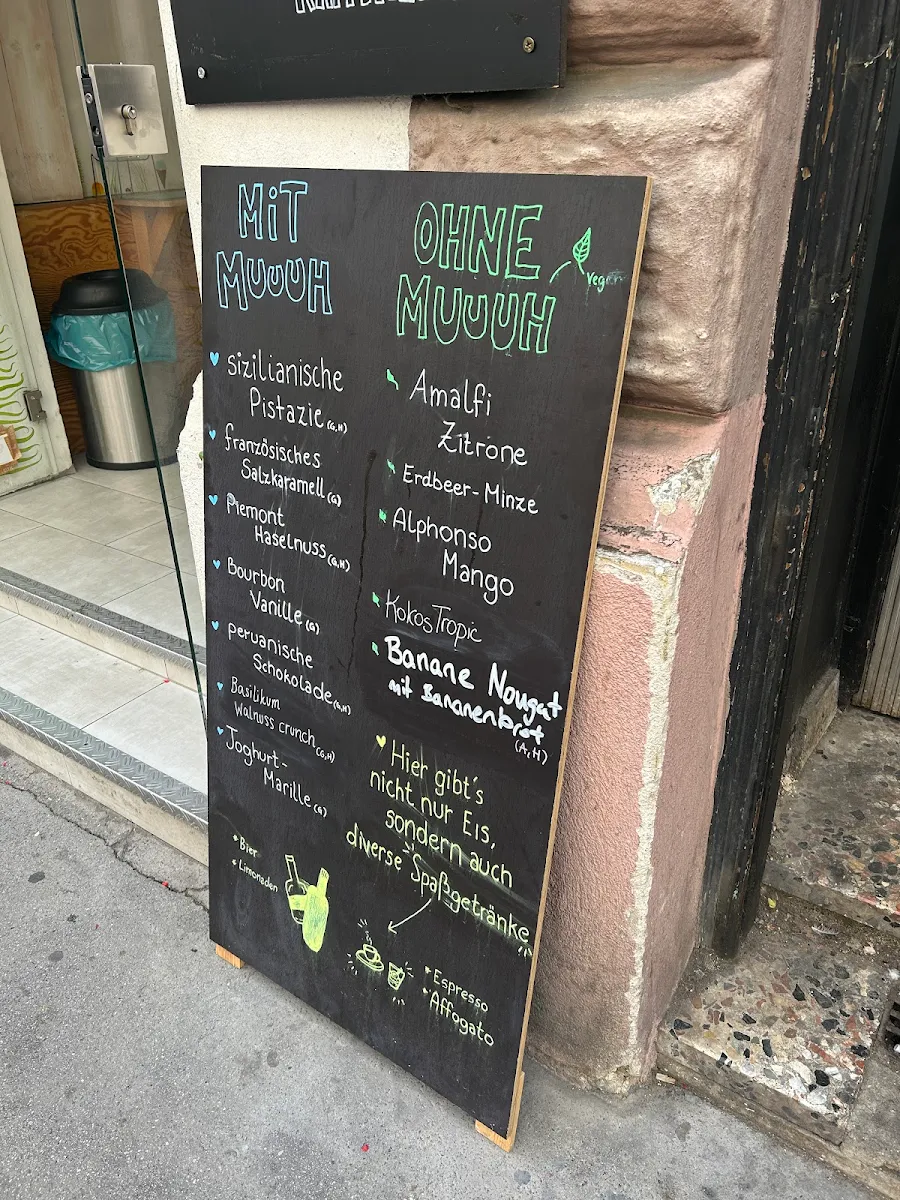 MiT
MUUUH
sizilianische
Pistazie (G,H)
französisches
Salzkaramell (G)
Piemont
Haselnuss (G,H)
Bourbon
Vanille (G)
peruanische
Schokolade (G,H)
Basilikum
Walnuss crunch (G,H)
Joghurt-
Marille (G)
* Bier
* Limonaden
OHNE
MUUUH
Vegan
Amalfi
Zitrone
Erdbeer-Minze
Alphonso
Mango
Kokos Tropic
Banane Nougat
mit Bananenbrot
(A,H)
Hier gibt's
nicht nur Eis,
sondern auch
diverse "Spaßgetränke"
* Espresso
* Affogato